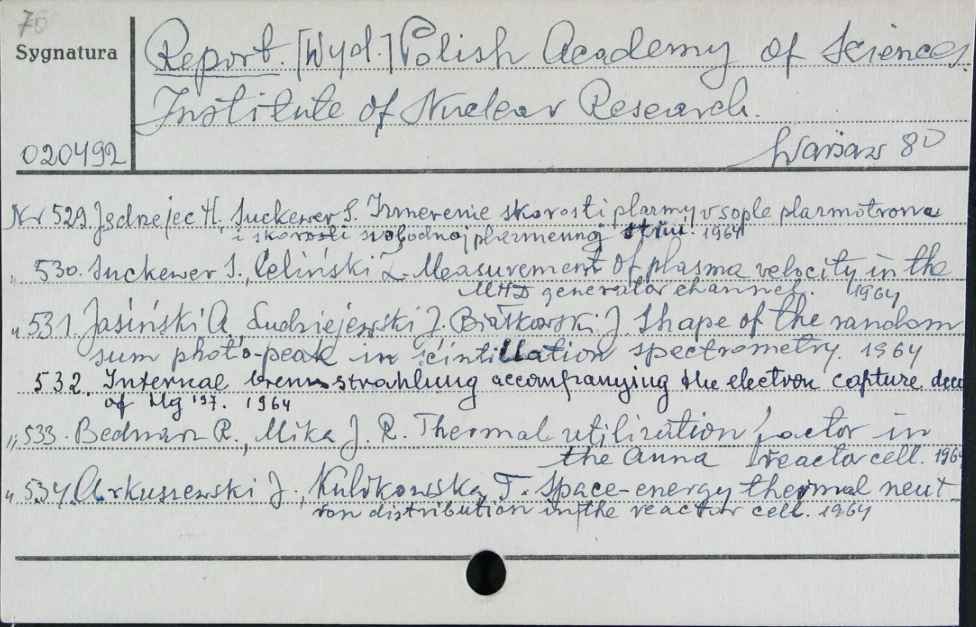 70
Sygnatura
Report. [Wyd.] Polish Academy of Sciences.
Institute of Nuclear Research.
020492
Warsaw 80
Nr 529. Jędrzejec H., Suckewer S. Izmerenie skorosti plazmy v sople plazmotrona
i skorosti svobodnoj plazmennoj strui. 1964
„ 530. Suckewer S., Celiński Z. Measurement of plasma velocity in the
MHD generator channel. 1964
„ 531. Jasiński A. Ludziejewski J. Białkowski J. Shape of the random
sum photo-peak in scintillation spectrometry. 1964
532. Internal bremsstrahlung accompanying the electron capture
of Hg 197. 1964
„ 533. Bednarz R., Mika J. R. Thermal utilization factor in
the Anna reactor cell. 1964
„ 534. Arkuszewski J., Kulikowska T. Space-energy thermal neut-
ron distribution in the reactor cell. 1964